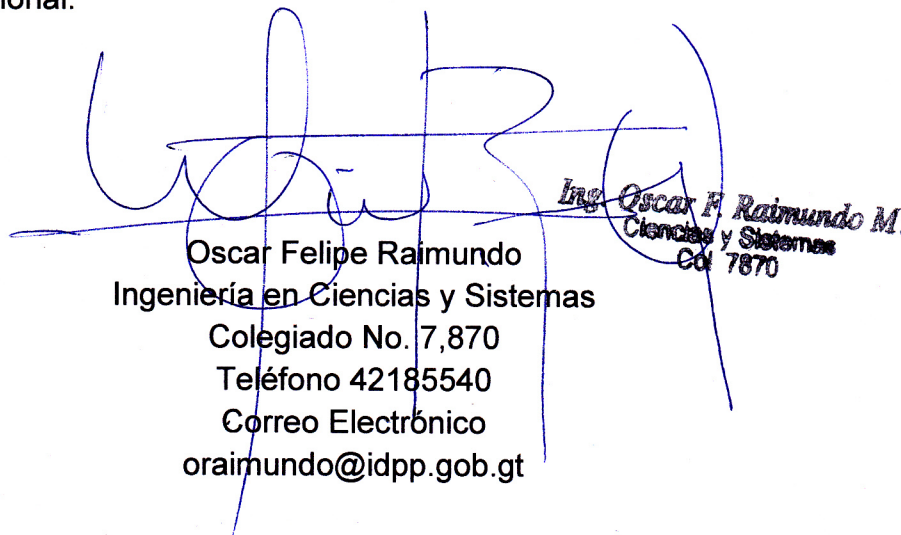 ional.
Ing. Oscar F. Raimundo M.
Ciencias y Sistemas
Col 7870
Oscar Felipe Raimundo
Ingeniería en Ciencias y Sistemas
Colegiado No. 7,870
Teléfono 42185540
Correo Electrónico
oraimundo@idpp.gob.gt